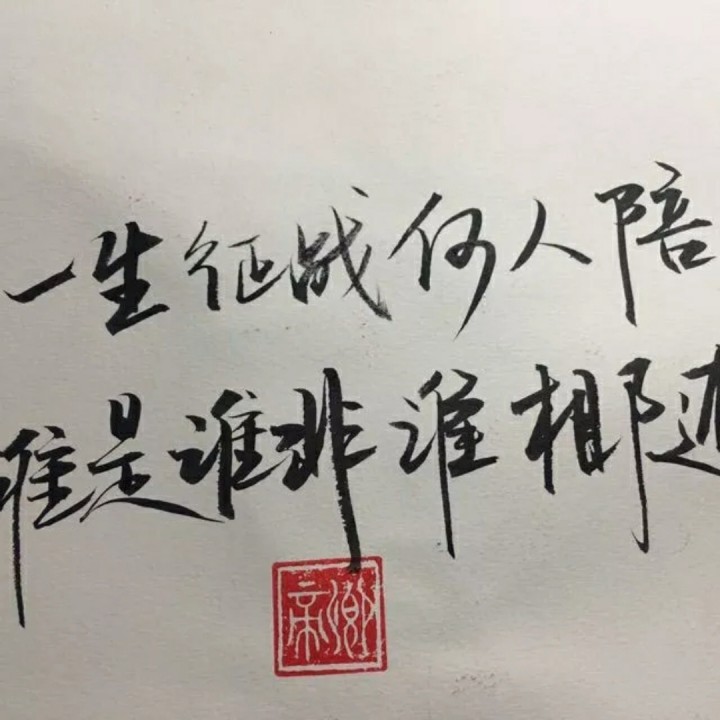 一生征战何人陪
谁是谁非谁相随